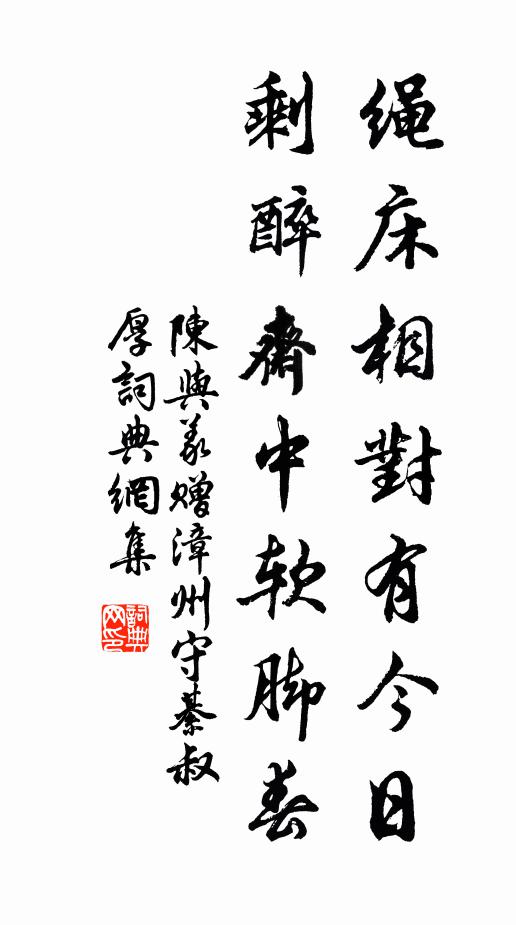 绳床相對有今日
剩醉齋中软脚春
陳與義贈漳州守綦叔
厚詞典網集
詞典网印